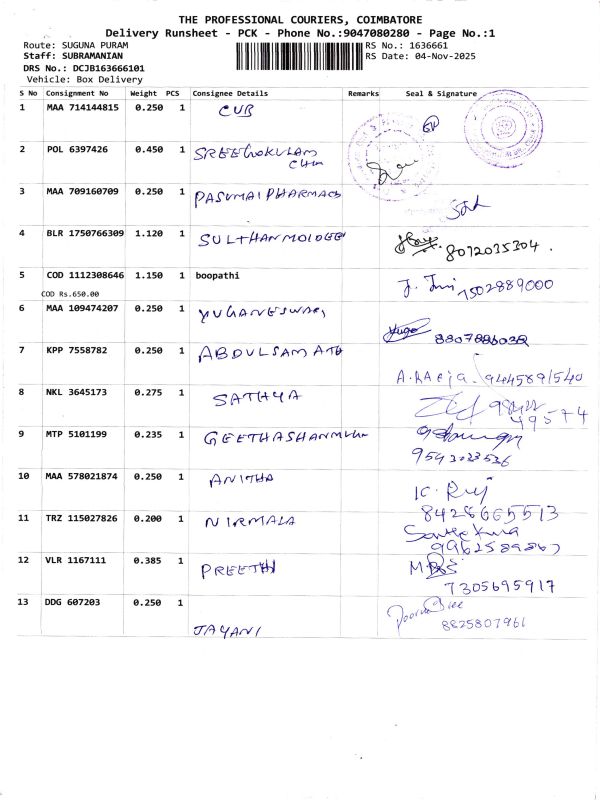 THE PROFESSIONAL COURIERS, COIMBATORE
Delivery Runsheet - PCK - Phone No.:9047080280 - Page No.:1
Route: SUGUNA PURAM
RS No.: 1636661
Staff: SUBRAMANIAN
RS Date: 04-Nov-2025
DRS No.: DCJB163666101
Vehicle: Box Delivery
S No Consignment No Weight PCS Consignee Details Remarks Seal & Signature
1 MAA 714144815 0.250 1 CUB
2 POL 6397426 0.450 1 SREEGOKULAM
3 MAA 709160709 0.250 1 PASUMAIPHARMACY
4 BLR 1750766309 1.120 1 SULTHAN
8072035304.
5 COD 1112308646 1.150 1 boopathi
COD Rs.650.00
7502889000
6 MAA 109474207 0.250 1 YUGANESWARI
7 KPP 7558782 0.250 1 ABDULSAMATH
9445891540
8 NKL 3645173 0.275 1 SATHYA
9 MTP 5101199 0.235 1 GEETHASHANMUGA
10 MAA 578021874 0.250 1 ANITHA
8428665513
11 TRZ 115027826 0.200 1 NIRMALA
12 VLR 1167111 0.385 1 PREETHI
7305695917
13 DDG 607203 0.250 1
JAYANI
8825807961